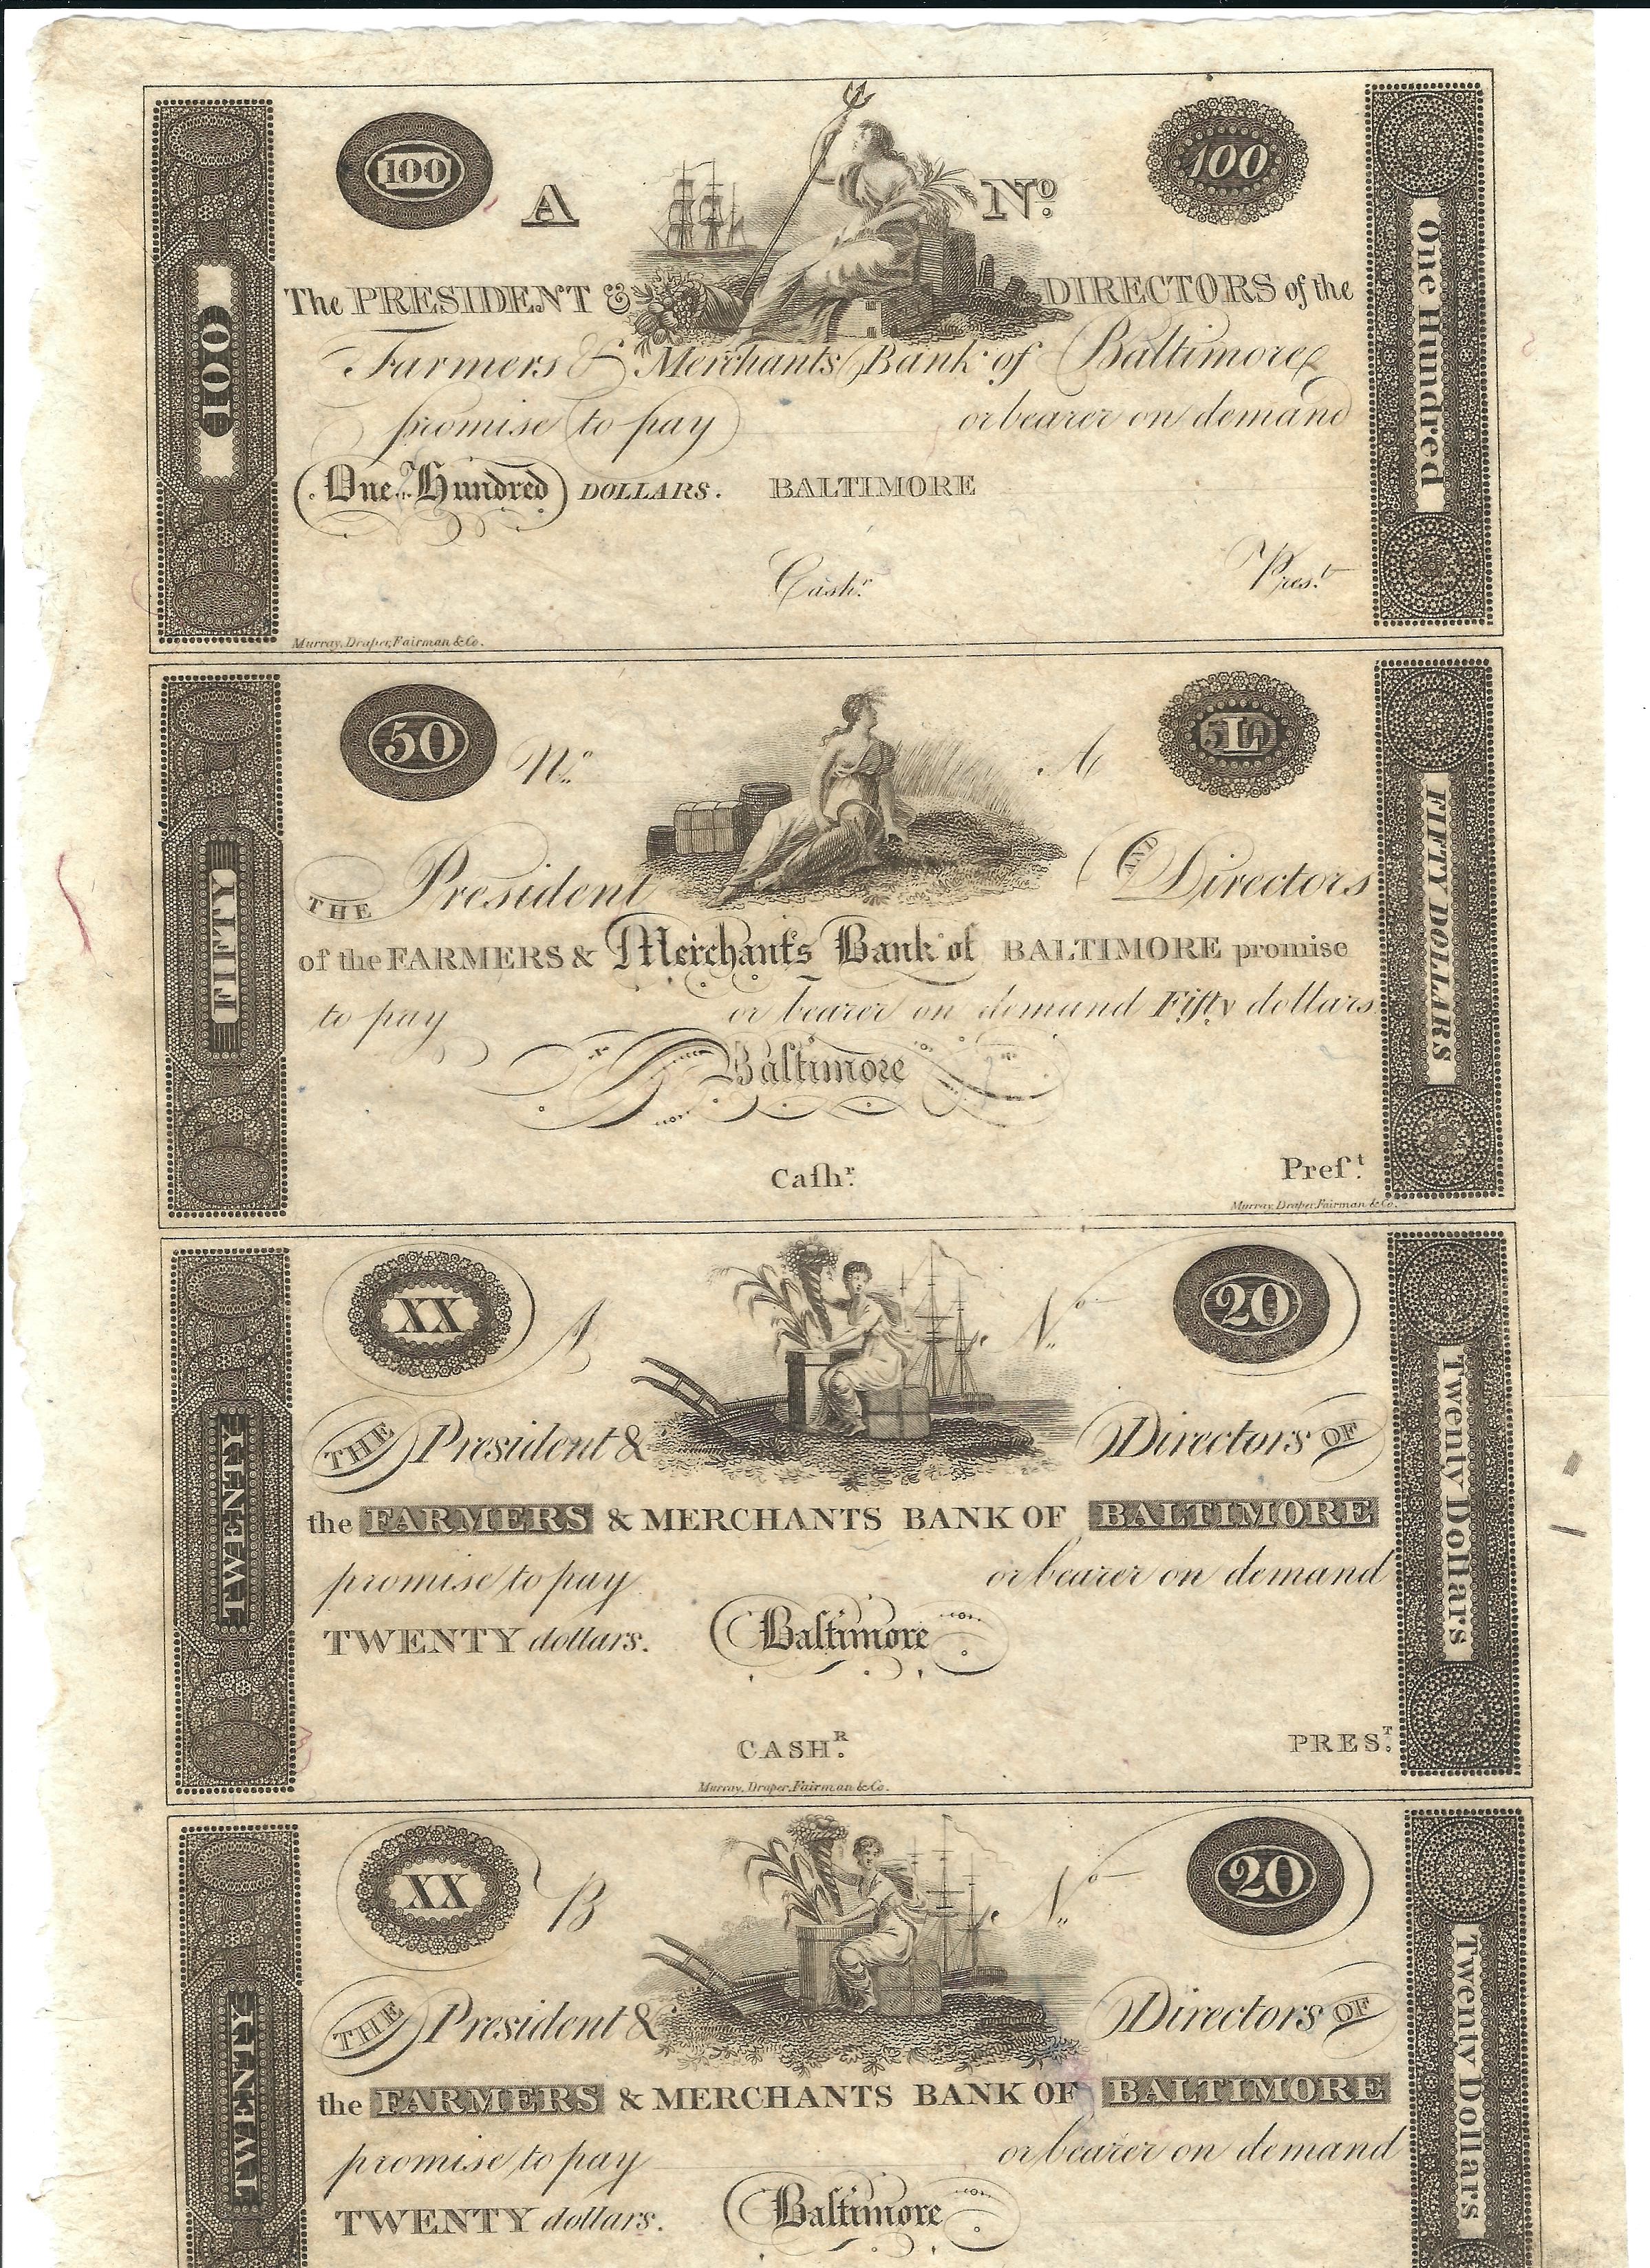 100 A Nº. 100
The PRESIDENT & DIRECTORS of the
Farmers & Merchants Bank of Baltimore
promise to pay or bearer on demand
One Hundred DOLLARS. BALTIMORE
Cashr. Prest.
Murray, Draper, Fairman & Co.
100
One Hundred
50 No. A 50 L
THE President AND Directors
of the FARMERS & Merchants Bank of BALTIMORE promise
to pay or bearer on demand Fifty dollars.
Baltimore
Caſhr. Preſt.
Murray, Draper, Fairman & Co.
FIFTY
FIFTY DOLLARS
XX A No. 20
THE President & Directors OF
the FARMERS & MERCHANTS BANK OF BALTIMORE
promise to pay or bearer on demand
TWENTY dollars. Baltimore
CASHR. PREST.
Murray, Draper, Fairman & Co.
TWENTY
Twenty Dollars
XX B No. 20
THE President & Directors OF
the FARMERS & MERCHANTS BANK OF BALTIMORE
promise to pay or bearer on demand
TWENTY dollars. Baltimore
TWENTY
Twenty Dollars